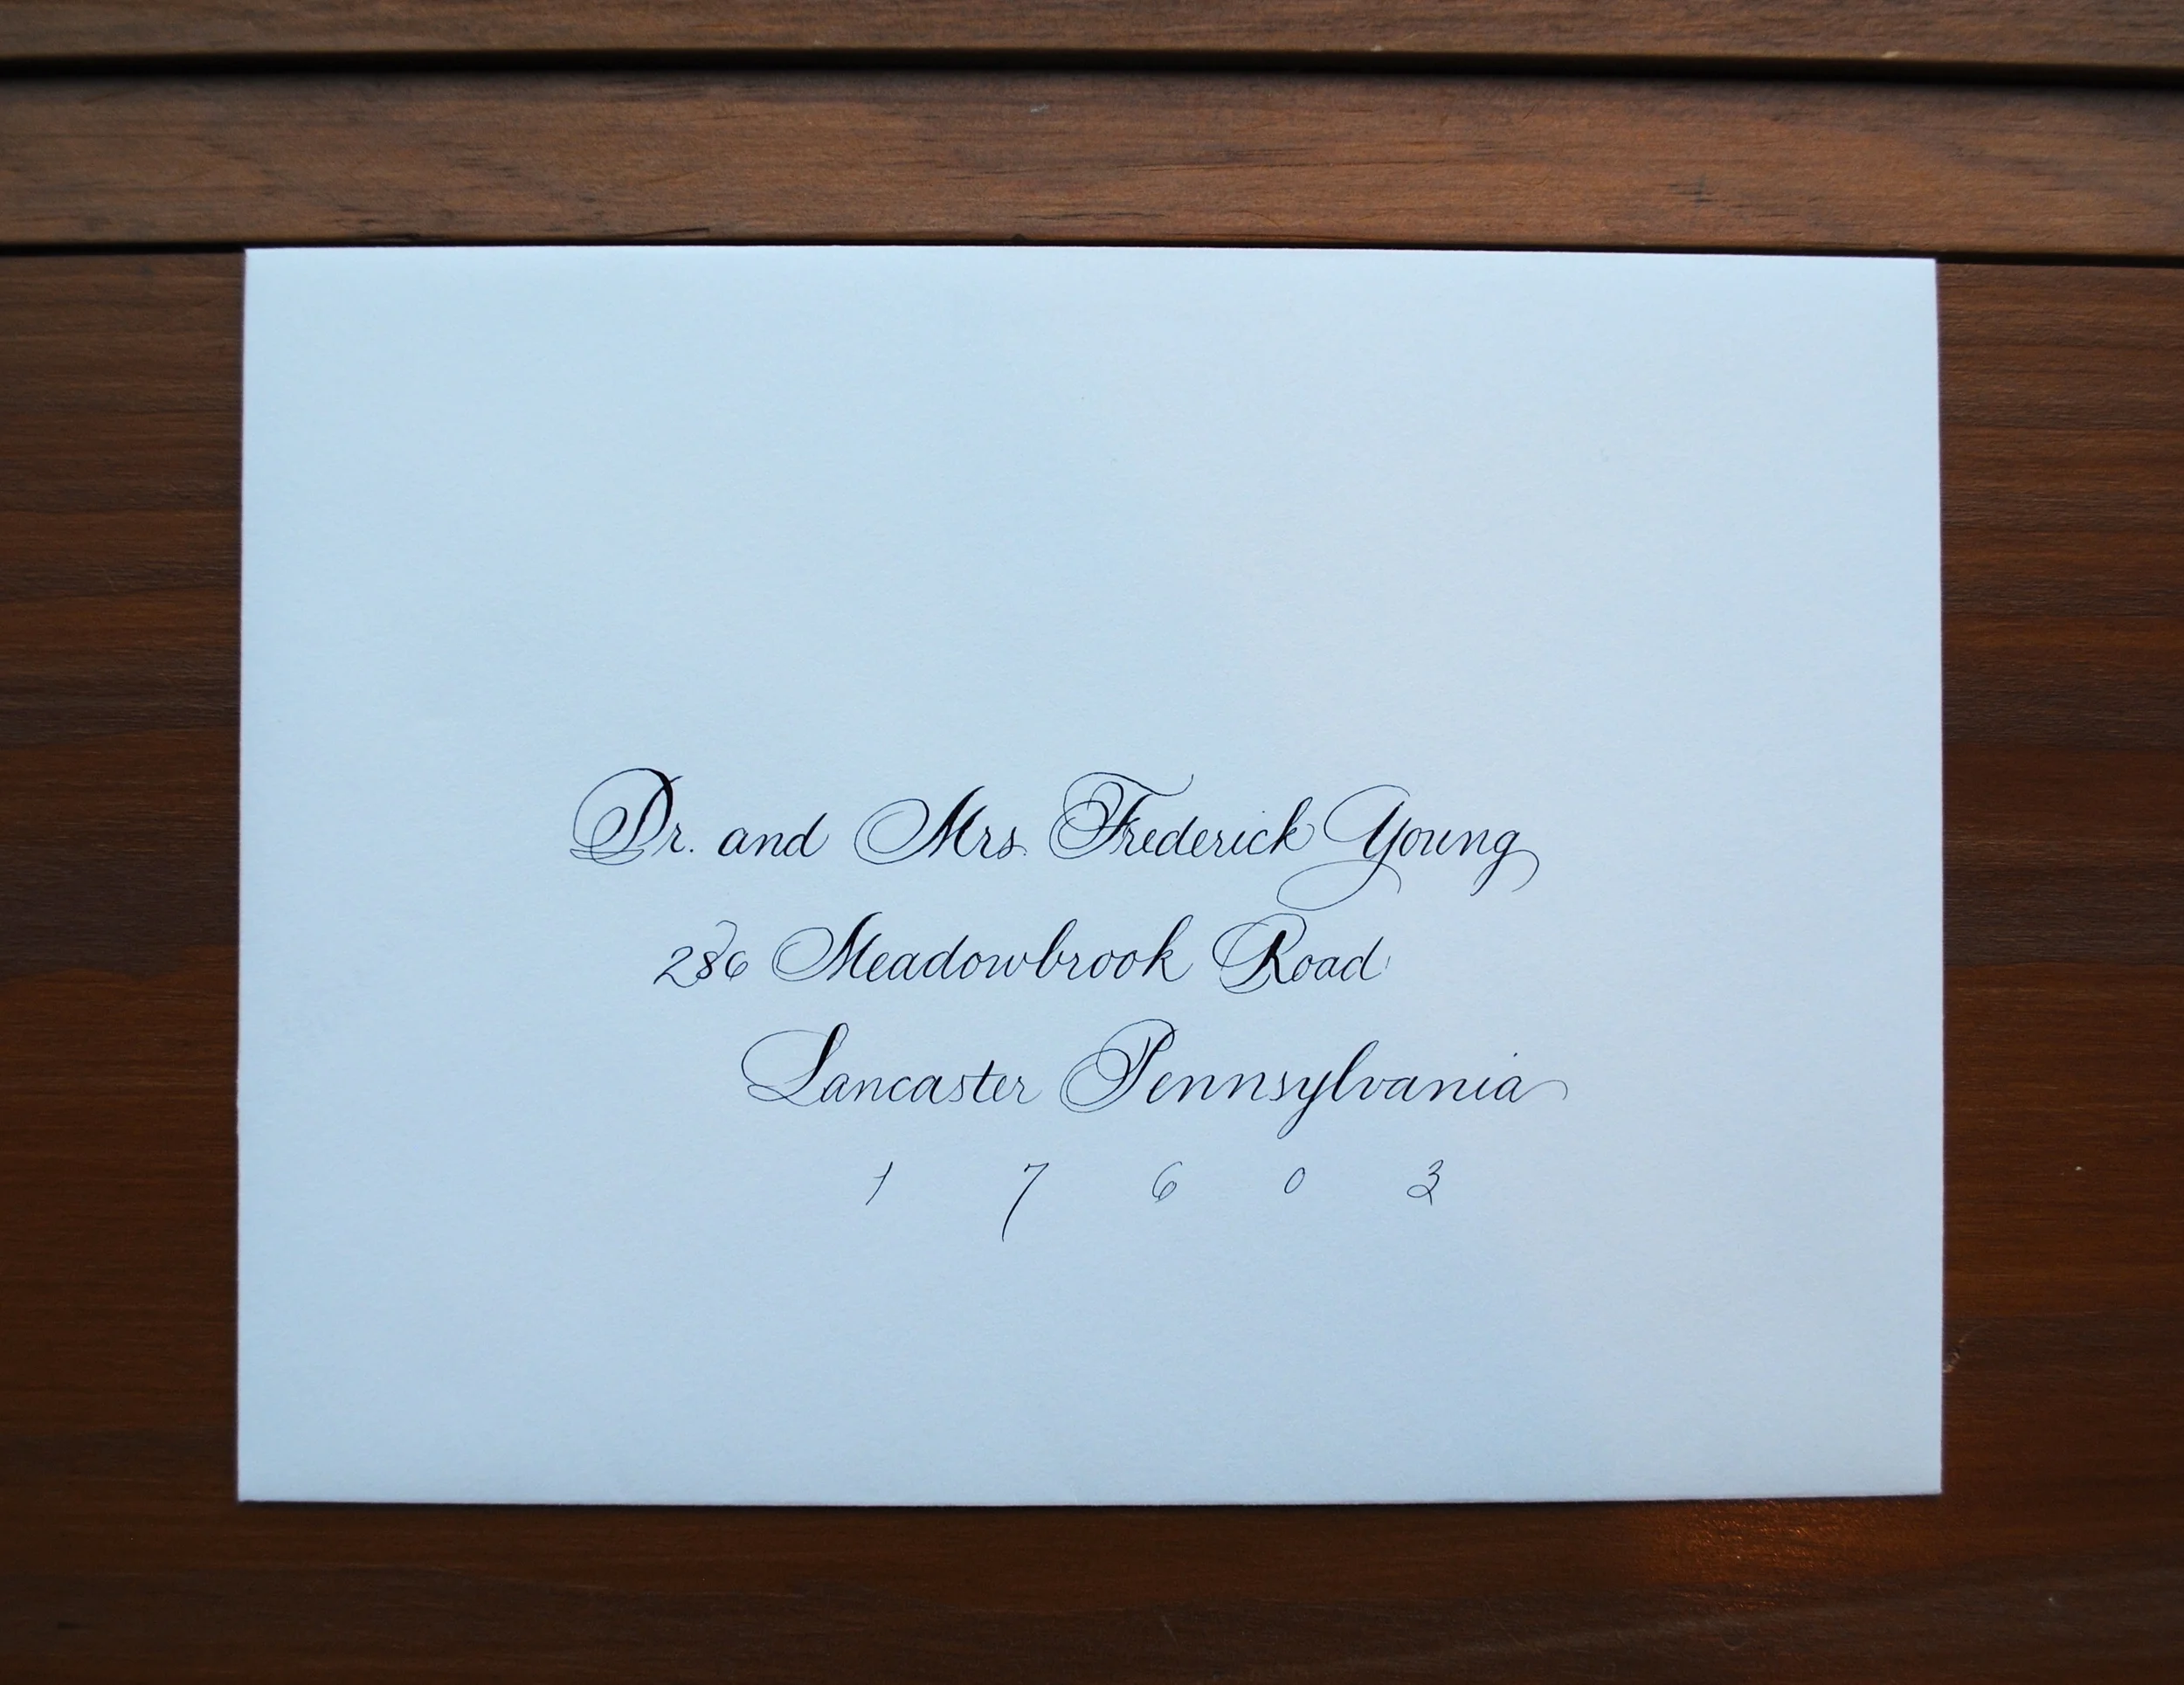 Dr. and Mrs. Frederick Young
286 Meadowbrook Road
Lancaster Pennsylvania
1 7 6 0 3